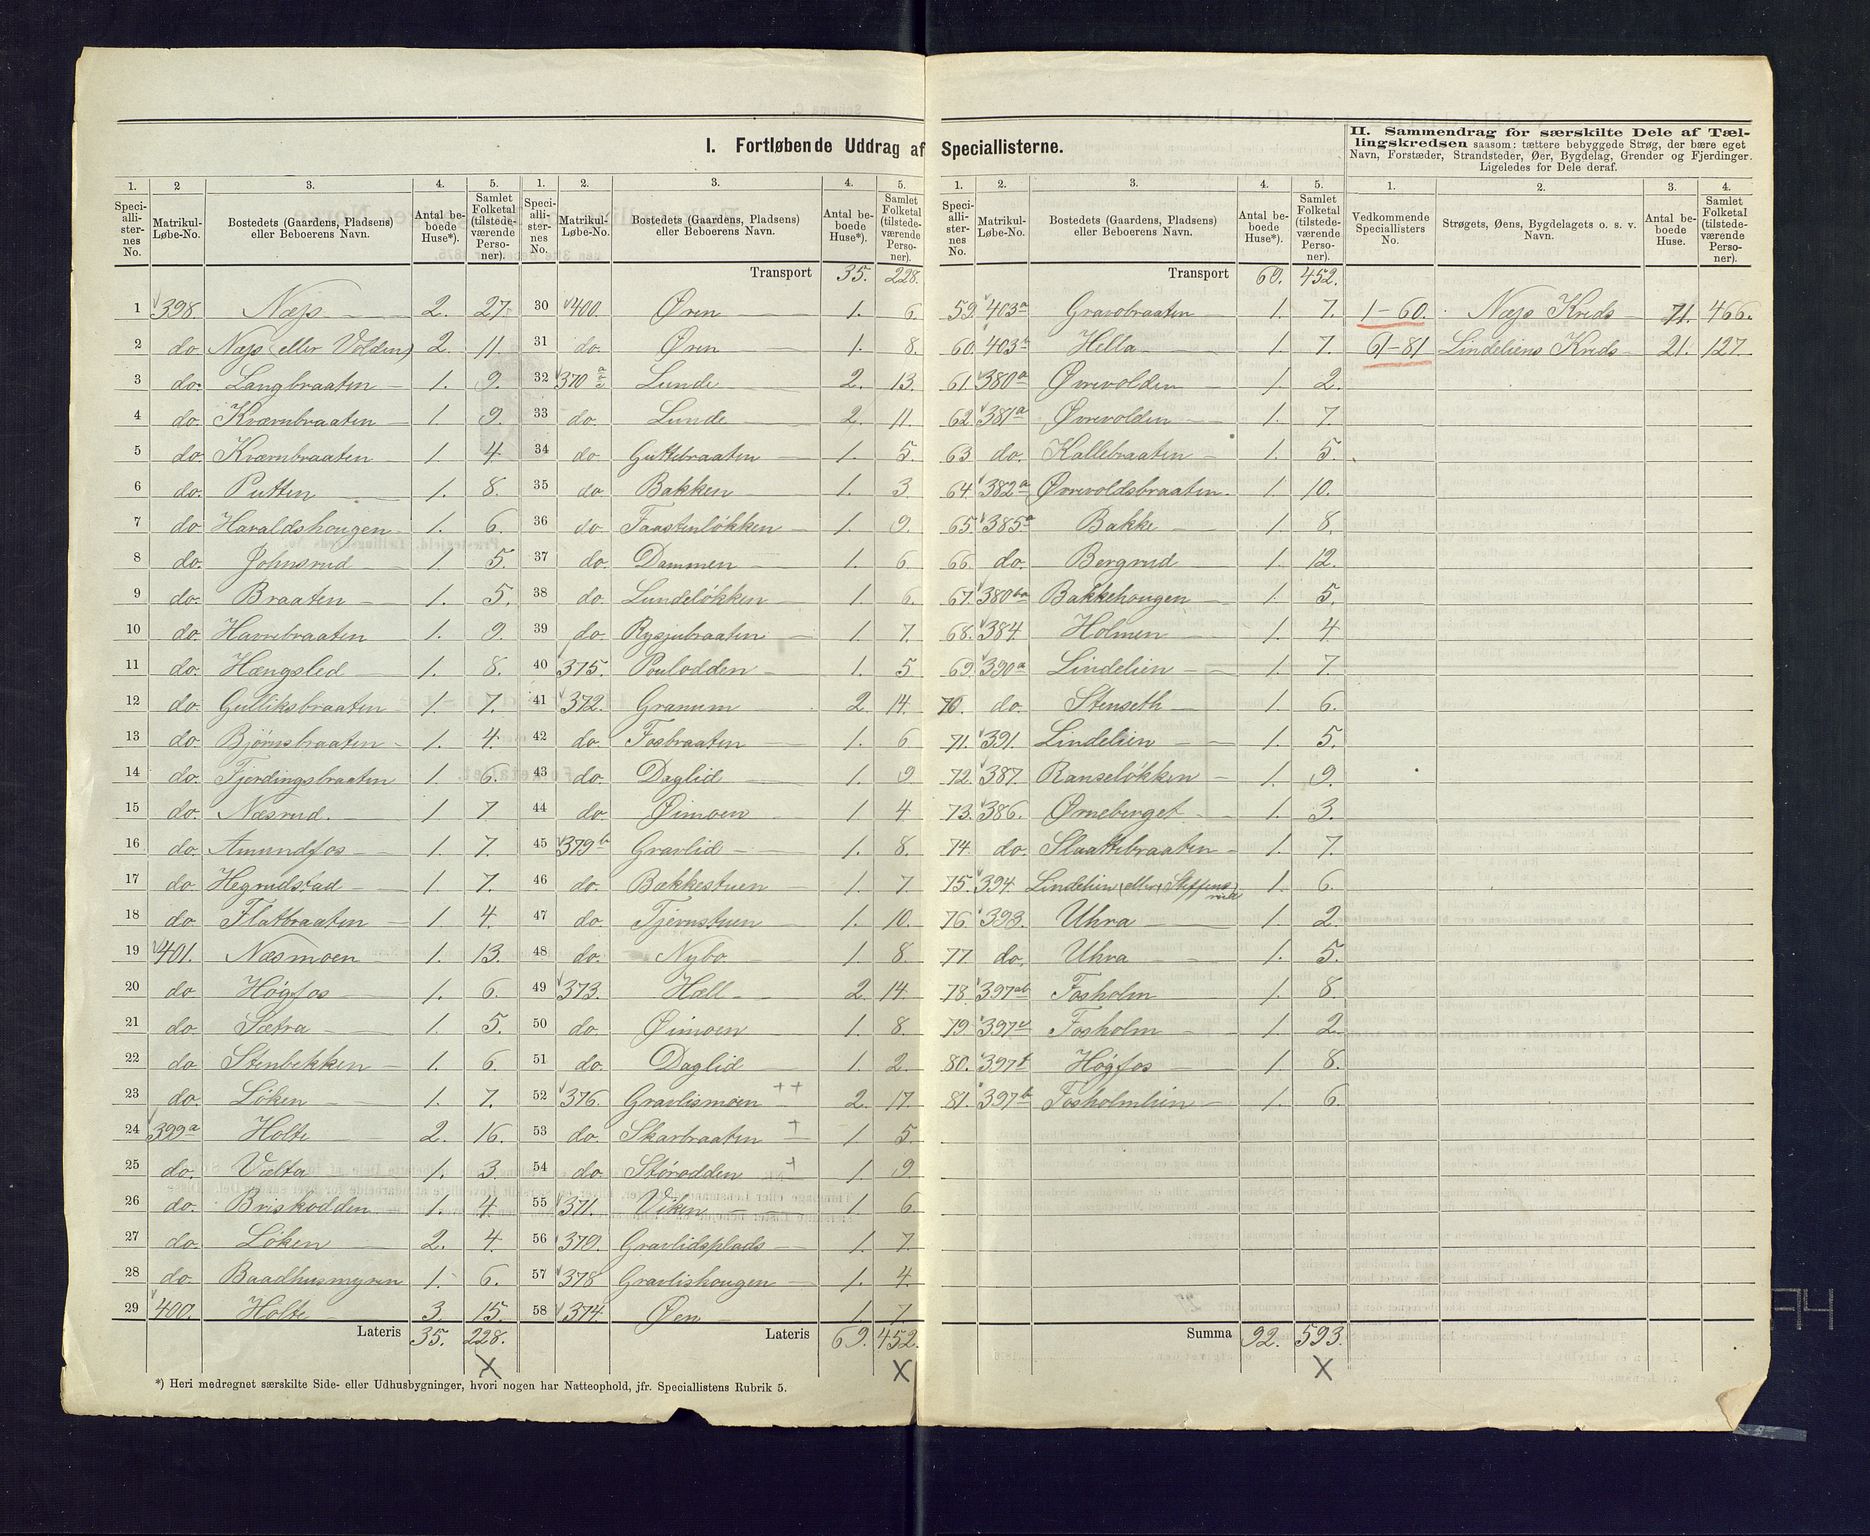 I. Fortløbende Uddrag af Speciallisterne.
II. Sammendrag for særskilte Dele af Tællingskredsen saasom: tættere bebyggede Strøg, der bære eget Navn, Forstæder, Strandsteder, Øer, Bygdelag, Grender og Fjerdinger. Ligeledes for Dele deraf.
1. 2 3. 4. 5.
Speciallisternes No. Matrikul-Løbe-No. Bostedets (Gaardens, Pladsens) eller Beboerens Navn. Antal beboede Huse*). Samlet Folketal (tilstedeværende Personer).
1 398 Næs 2. 27
2 do Næs (eller Volden) 2. 11.
3 do. Langbraaten 1. 9.
4 do. Kværnbraaten 1. 9.
5 do. Kværnbraaten 1. 4
6 do. Putten 1. 8.
7 do Haraldshougen 1. 6.
8 do. Johnsrud 1. 5.
9 do. Braaten 1. 5.
10 do. Havrebraaten 1. 9.
11 do. Hængsled 1. 8.
12 do. Gulliksbraaten 1. 7.
13 do. Bjørnsbraaten 1. 4.
14 do. Fjerdingsbraaten 1 6.
15 do. Næsrud. 1 7
16 do. Amundfos 1 7.
17 do. Hegrudstad 1 7.
18 do. Flatbraaten 1. 4.
19 401. Næsmoen 1. 13.
20 do Høgfos 1. 6.
21 do. Sætra 1. 5.
22 do. Stenbekken 1. 6.
23 do. Løken 1. 7.
24 399a Holte 2. 16.
25 do. Vælta 1. 3.
26 do. Briskodden 1. 4
27 do. Løken 2. 4.
28 do. Baadhusmyren 1. 6.
29 400. Holte 3. 15.
Lateris 35. 228.
X
*) Heri medregnet særskilte Side- eller Udhusbygninger, hvori nogen har Natteophold, jfr. Speciallistens Rubrik 5.
1. 2. 3. 4. 5.
Speciallisternes No. Matrikul-Løbe-No. Bostedets (Gaardens, Pladsens) eller Beboerens Navn. Antal beboede Huse*). Samlet Folketal (tilstedeværende Personer).
Transport 35. 228.
30 400. Øren 1. 6.
31 do. Øren 1. 8.
32 370 Lunde 2. 13.
33 do. Lunde 2. 11.
34 do Guttebraaten 1. 5.
35 do Bakken 1. 3
36 do Taastenløkken 1. 9.
37 do. Dammen 1. 6
38 do. Lundeløkken 1. 6.
39 do. Rysjubraaten 1. 7.
40 375. Poulodden 1. 5
41 372. Granum 2. 14.
42 do. Fosbraaten 1. 6
43 do. Daglid 1. 9
44 do Øimoen 1 4
45 379b Gravlid 1. 8.
46 do. Bækkestuen 1. 7
47 do. Tjernstuen 1. 10.
48 do. Nybo 1. 8.
49 373. Hæll 2. 14.
50 do. Øimoen 1. 8
51 do. Daglid 1. 2.
52 376. Gravlismoen ++ 2. 17
53 do. Skarbraaten + 1 5.
54 do. Storodden + 1. 9
55 371. Viken 1. 6
56 370. Gravlidsplads 1. 7.
57 378 Gravlishougen 1. 4.
58 374. Øen 1. 7.
Lateris 69. 452.
X
1. 2. 3. 4. 5.
Speciallisternes No. Matrikul-Løbe-No. Bostedets (Gaardens, Pladsens) eller Beboerens Navn. Antal beboede Huse*). Samlet Folketal (tilstedeværende Personer).
Transport 69. 452.
59. 403a Gravobraaten 1. 7.
60. 403 Hella 1. 7.
61. 380a Øvrevolden 1. 2.
62. 381a Øvrevolden 1. 7.
63 do. Kallebraaten 1. 5.
64 382a Øvrevoldsbraaten 1. 10.
65. 385a Bakke 1. 8.
66. do. Bergrud 1. 12.
67. 380 Bakkehougen 1. 5.
68. 384 Holmen 1. 4
69. 390a Lindelien 1. 7.
70. do. Stenseth 1. 6.
71. 391. Lindelien 1. 5.
72. 387. Ranseløkken 1. 9.
73. 386. Ørneberget 1. 3.
74. do. Slaattebraaten 1. 7.
75. 394. Lindelien (eller Steffensrud) 1. 6.
76. 393. Uhra 1. 2.
77. do. Uhra 1. 5.
78 397ab Fosholm 1. 8.
79. 397 Fosholm 1. 2.
80. 397 Høgfos 1 8.
81. 397b Fosholmlien 1. 6.
Summa 92. 593.
X
1. 2. 3. 4.
Vedkommende Speciallisters No. Strøgets, Øens, Bygdelagets o. s. v. Navn. Antal beboede Huse. Samlet Folketal (tilstedeværende Personer).
1-60. Næs Kreds 71. 466.
61-81 Lindeliens Kreds 21. 127.